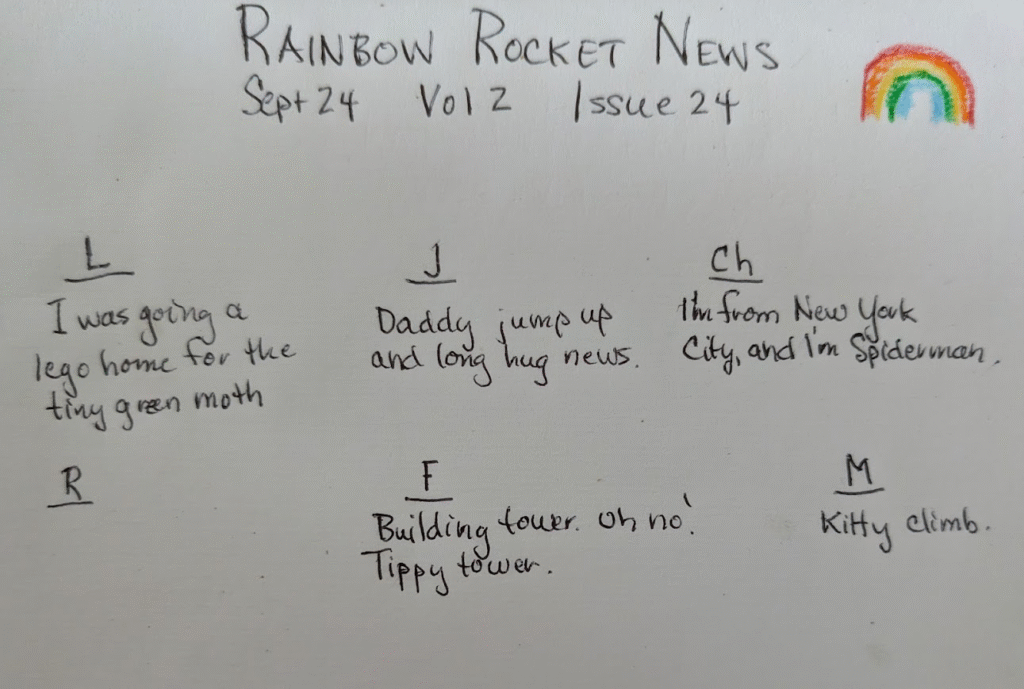 RAINBOW ROCKET NEWS
Sept 24 Vol 2 Issue 24
L
I was going a
lego home for the
tiny green moth
J
Daddy jump up
and long hug news.
Ch
I'm from New York
City, and I'm Spiderman.
R
F
Building tower. Oh no!
Tippy tower.
M
Kitty climb.